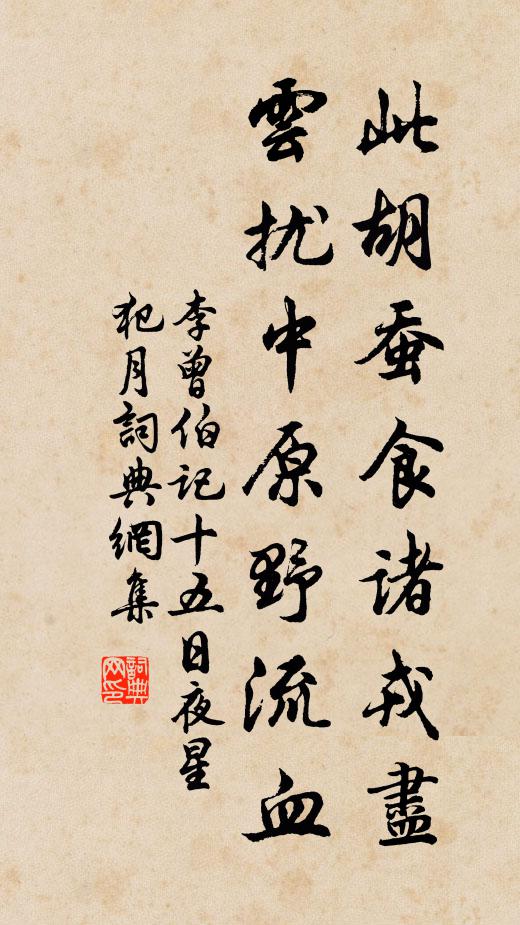 此胡蚕食诸戎盡
雲扰中原野流血
李曾伯记十五日夜星
犯月詞典網集
詞典网印